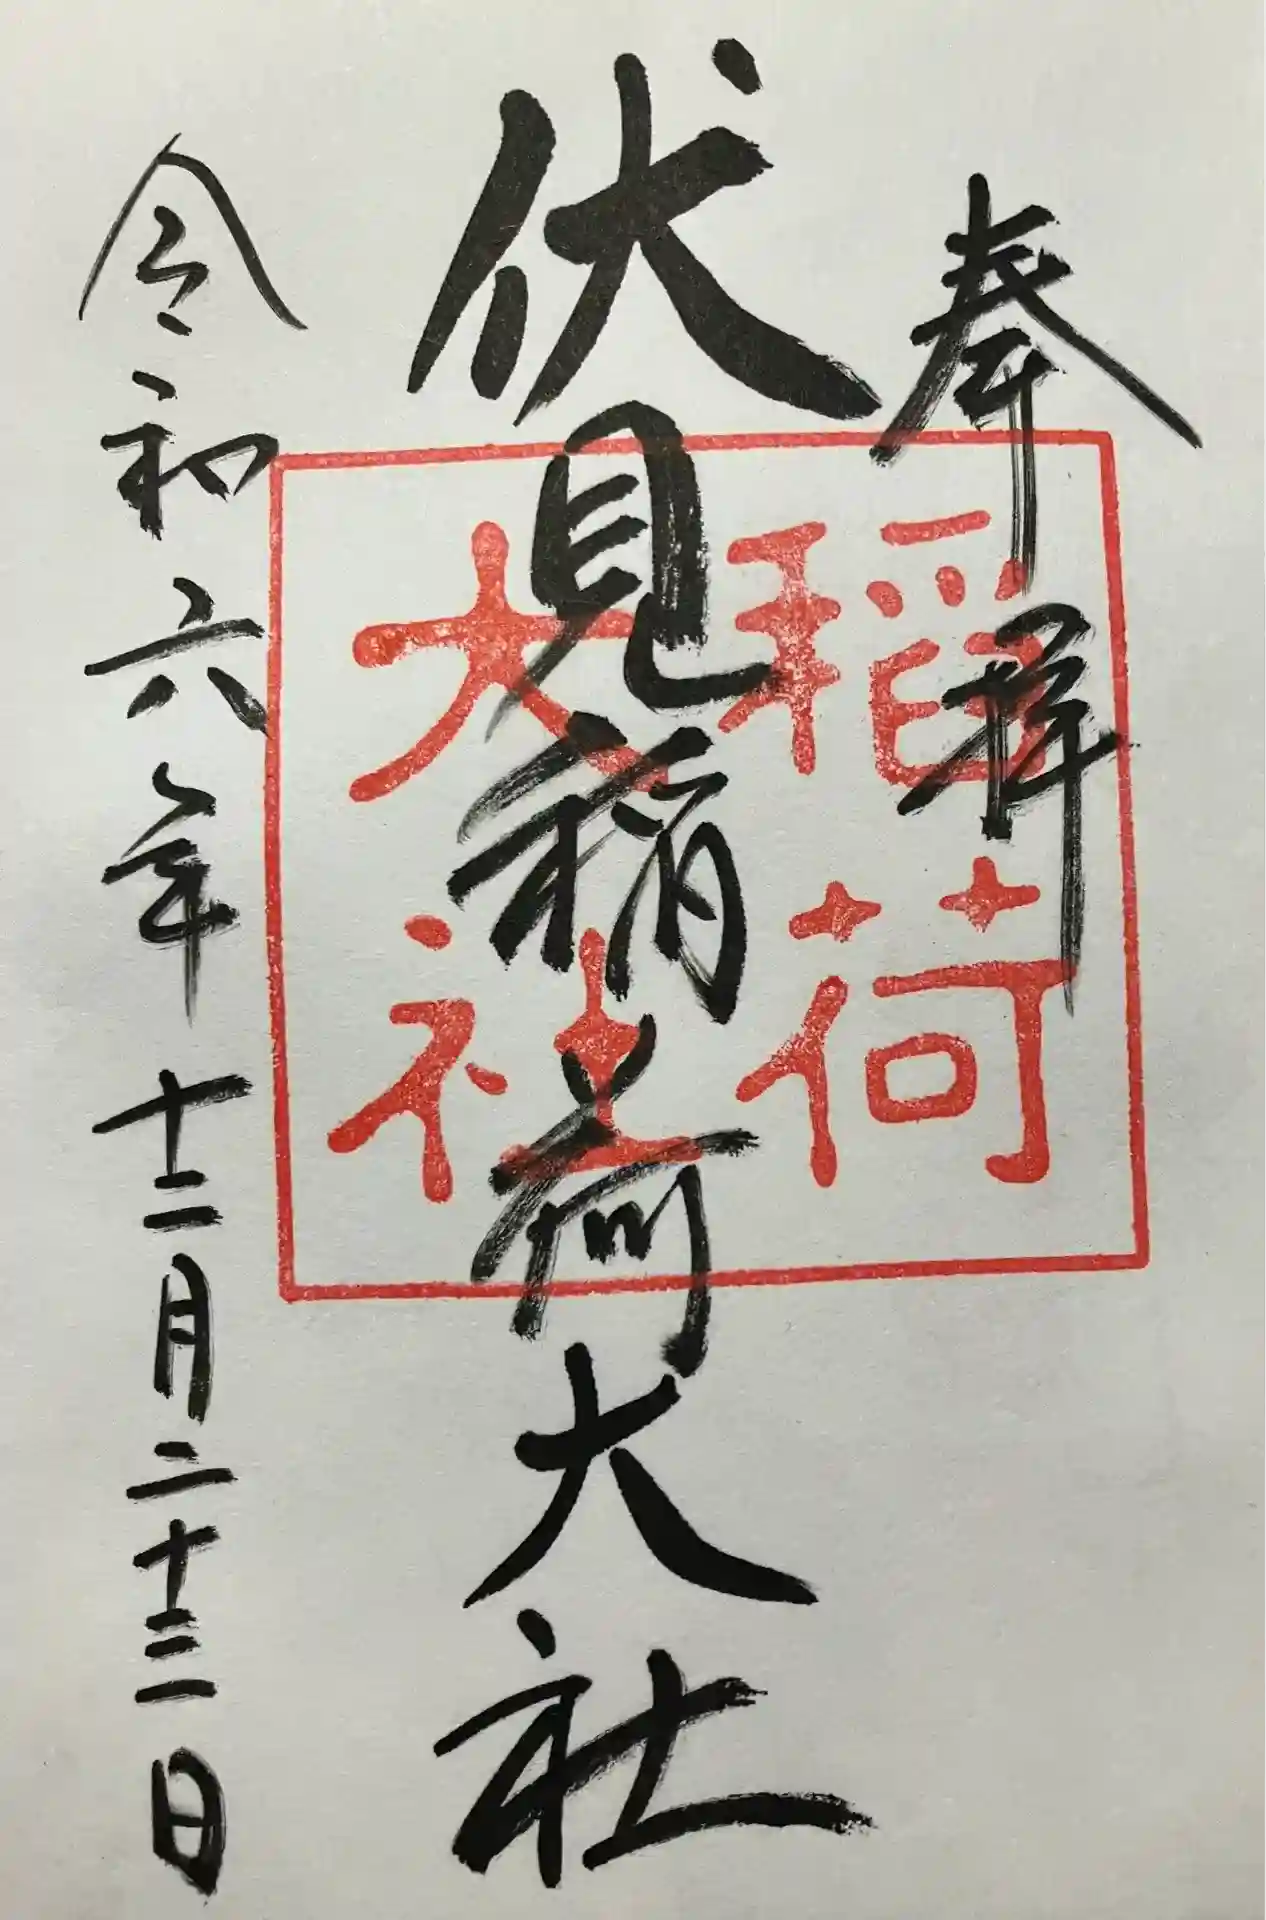 奉拝
伏見稲荷大社
稲荷
大社
令和六年十二月二十三日